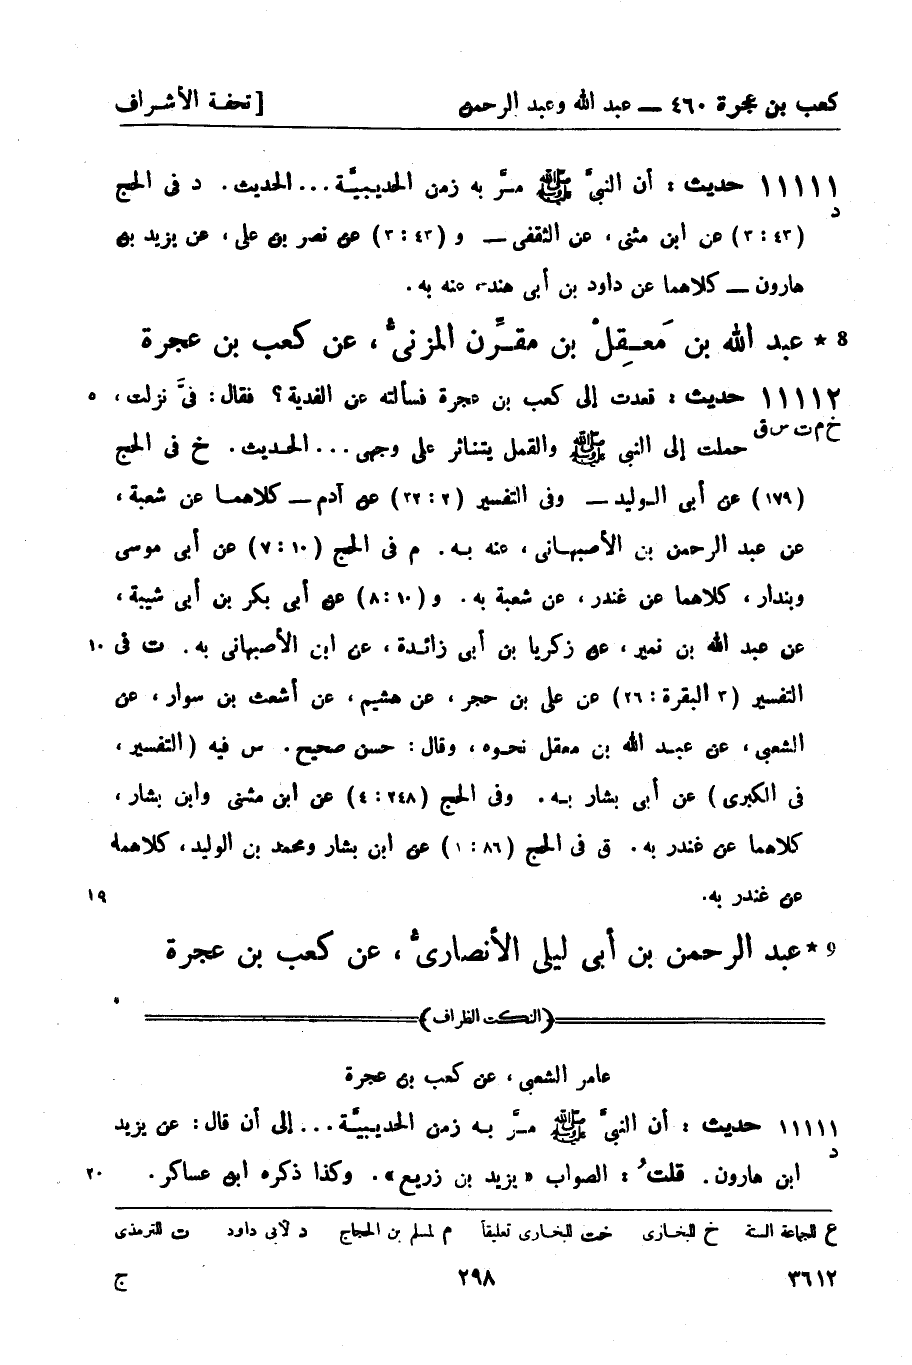 كعب بن عجرة ٤٦٠ — عبد الله وعبد الرحمن [ تحفة الأشراف
١١١١١ حديث : أن النبيَّ ﷺ مـرَّ به زمن الحديبيَّـة ... الحديث . د فى الحج
د
(٤٣ : ٣) عن ابن مثنى ، عن الثقفى — و (٤٣ : ٣) عن نصر بن على ، عن يزيد بن
هارون — كلاهما عن داود بن أبى هند، عنه به .
8 * عبد الله بن مَعـقِلْ بن مقـرِّن المزنىُّ ، عن كعب بن عجرة
١١١١٢ حديث : قعدت إلى كعب بن عجرة فسألته عن الفدية ؟ فقال : فىَّ نزلت ، ٥
خ م ت س ق حملت إلى النبى ﷺ والقمل يتناثر على وجهى ... الحـديث . خ فى الحج
(١٧٩) عن أبى الـوليد — وفى التفسير (٢ : ٢٢) عن آدم — كلاهمـا عن شعبة ،
عن عبد الرحمن بن الأصبهـانى ، عنه بـه . م فى الحج (١٠ : ٧) عن أبى موسى
وبندار ، كلاهما عن غندر ، عن شعبة به . و (١٠ : ٨) عن أبى بكر بن أبى شيبة ،
عن عبد الله بن نمير ، عن زكريا بن أبى زائـدة ، عن ابن الأصبهانى به . ت فى ١٠
التفسير (٣ البقرة : ٢٦) عن على بن حجر ، عن هشيم ، عن أشعث بن سوار ، عن
الشعبى ، عن عبـد الله بن معقل نحـوه ، وقال : حسن صحيح . س فيه (التفسير ،
فى الكبرى) عن أبى بشار بـه . وفى الحج (٢٤٨ : ٤) عن ابن مثنى وابن بشار ،
كلاهما عن غندر به . ق فى الحج (٨٦ : ١) عن ابن بشار ومحمد بن الوليد ، كلاهما
عن غندر به . ١٩
9 * عبد الرحمن بن أبى ليلى الأنصارىُّ ، عن كعب بن عجرة
(النكت الظراف)
عامر الشعبى ، عن كعب بن عجرة
١١١١١ حديث : أن النبىَّ ﷺ مـرَّ بـه زمن الحديبيَّـة ... إلى أن قال : عن يزيد
د
ابن هارون . قلتُ : الصواب «يزيد بن زريع» . وكذا ذكره ابن عساكر . ٢٠
ع للجماعة الستة خ للبخارى خت للبخارى تعليقاً م لمسلم بن الحجاج د لأبى داود ت للترمذى
٣٦١٢ ٢٩٨ ج